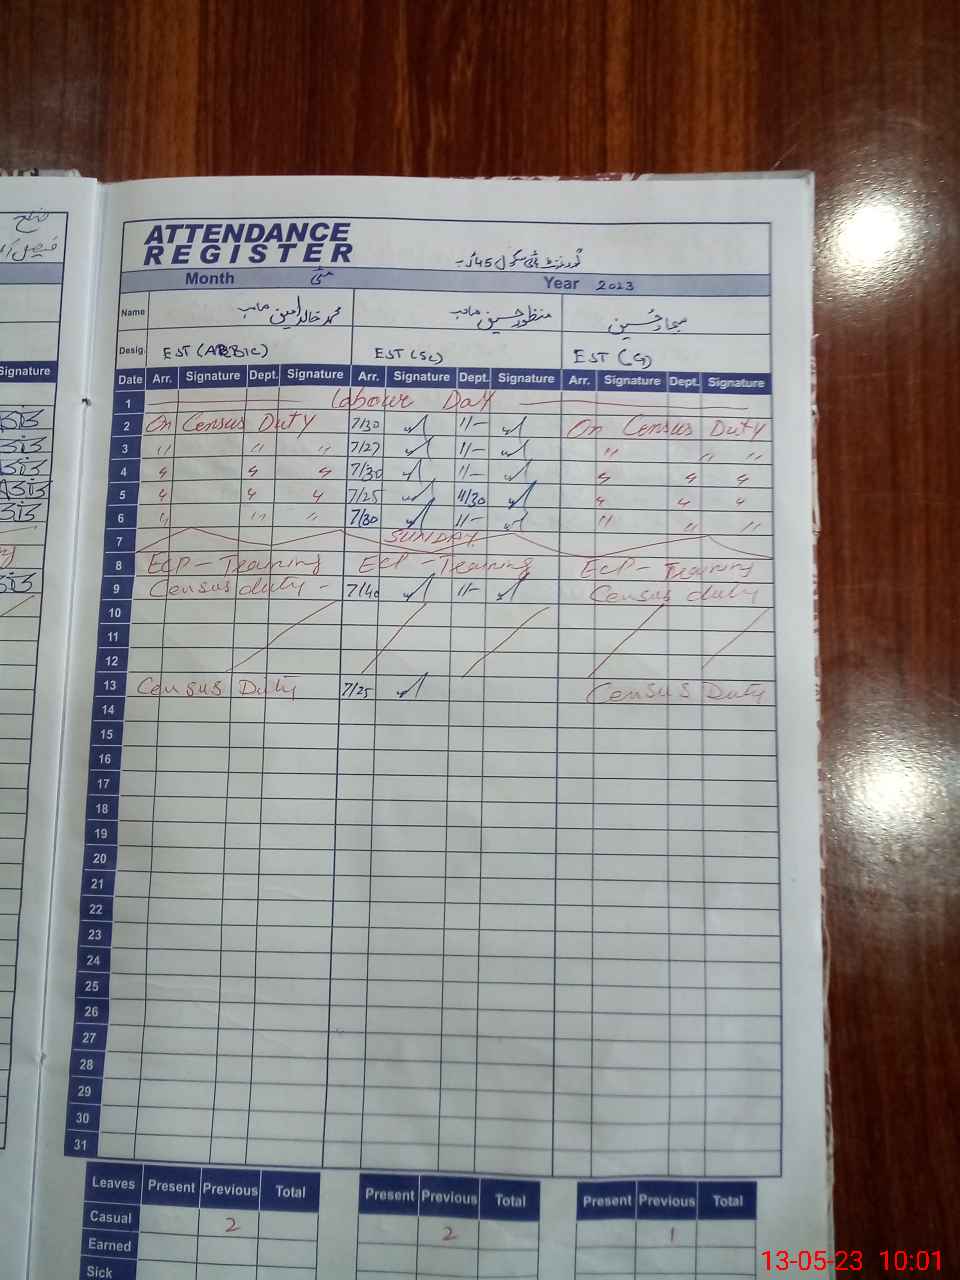 ضلع
فیصل آباد
Signature
ATTENDANCE
REGISTER
گورنمنٹ ہائی سکول 45
Month مئی Year 2023
Name محمد خالد امین صاحب منظور حسین صاحب سجاد حسین
Desig. EST (ARBIC) EST (SC) EST (G)
Date Arr. Signature Dept. Signature Arr. Signature Dept. Signature Arr. Signature Dept. Signature
1 Labour Day
2 On Census Duty 7/30 11/- On Census Duty
3 " " " 7/27 11/- " " "
4 " " " 7/30 11/- " " "
5 " " " 7/25 11/30 " " "
6 " " " 7/30 11/- " " "
7 SUNDAY
8 ECP - Training ECP - Training ECP - Training
9 Census duty - 7/40 11/- Census duty
10
11
12
13 Census Duty 7/25 Census Duty
14
15
16
17
18
19
20
21
22
23
24
25
26
27
28
29
30
31
Leaves Present Previous Total Present Previous Total Present Previous Total
Casual 2 2 1
Earned
Sick
13-05-23 10:01